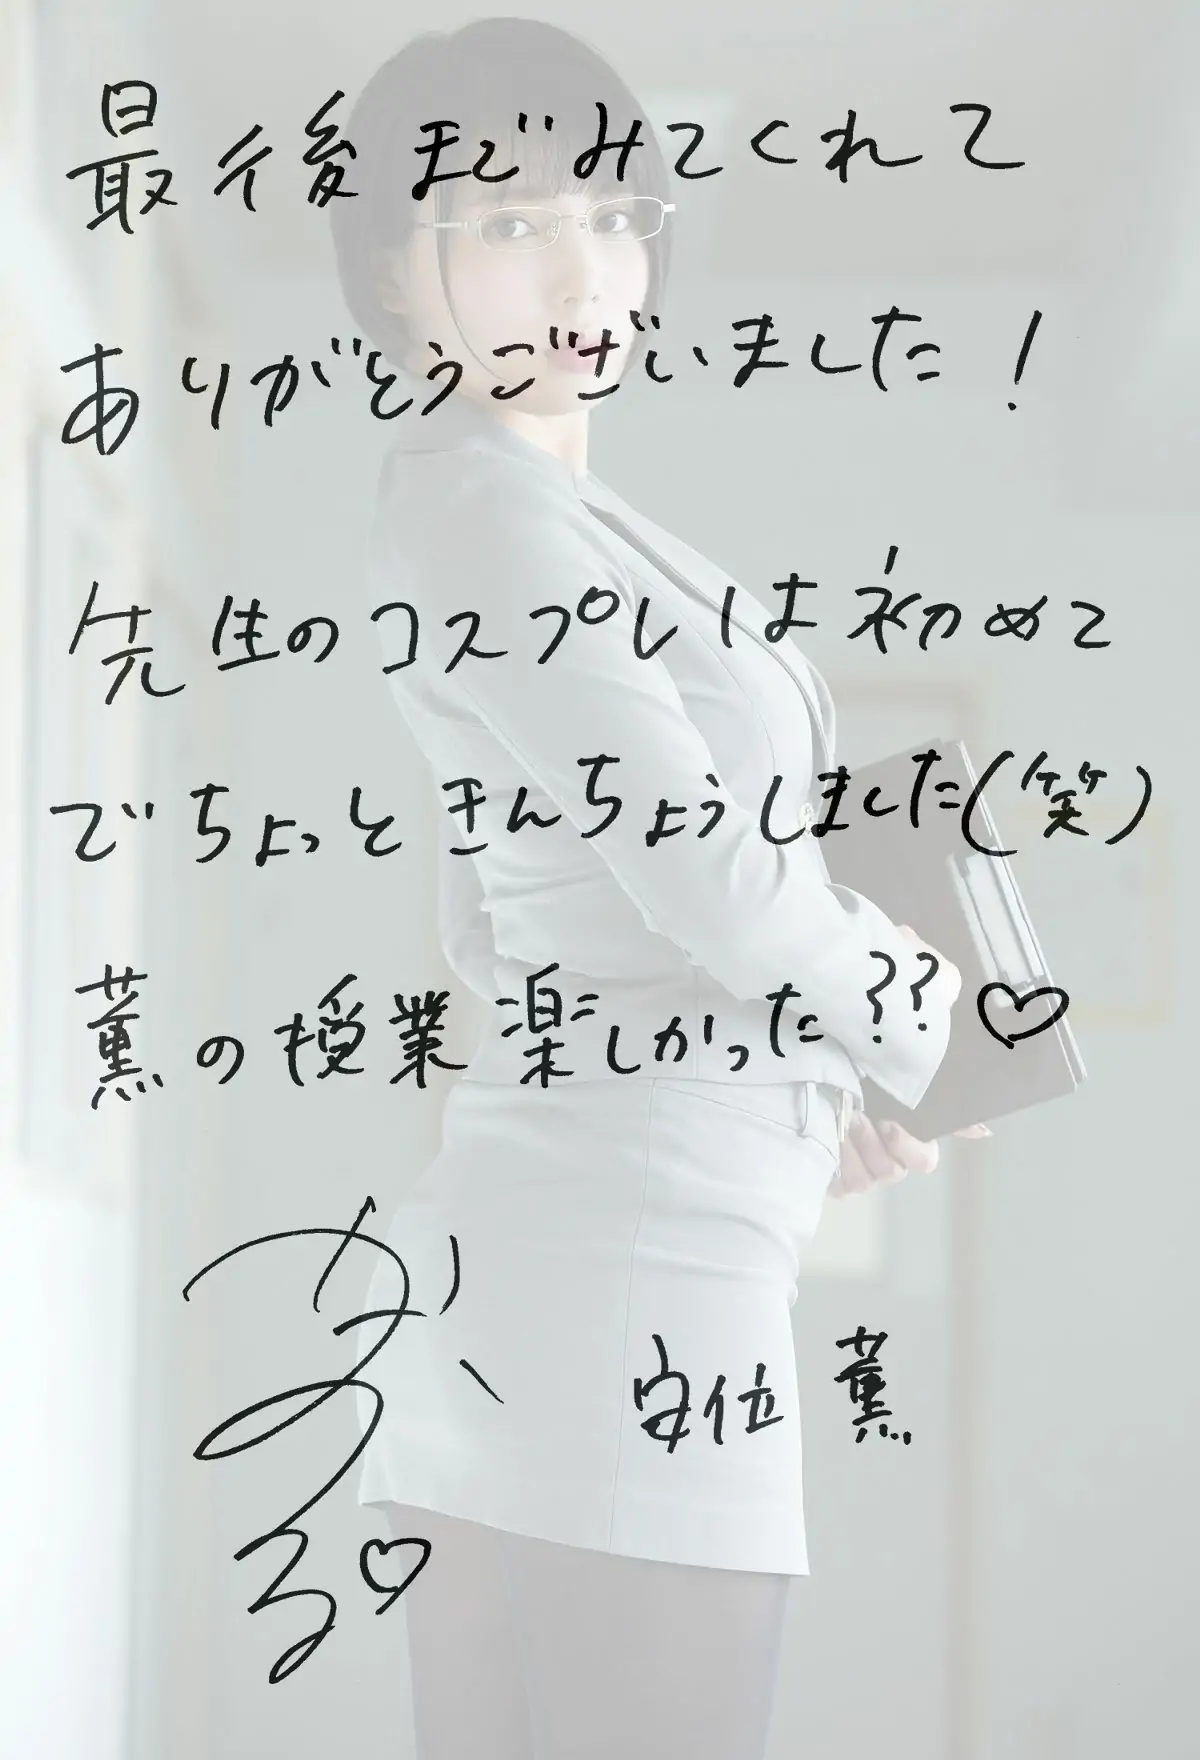 最後までみてくれて
ありがとうございました！
先生のコスプレは初めて
でちょっときんちょうしました(笑)
薫の授業楽しかった??♡
かおる♡
安位 薫